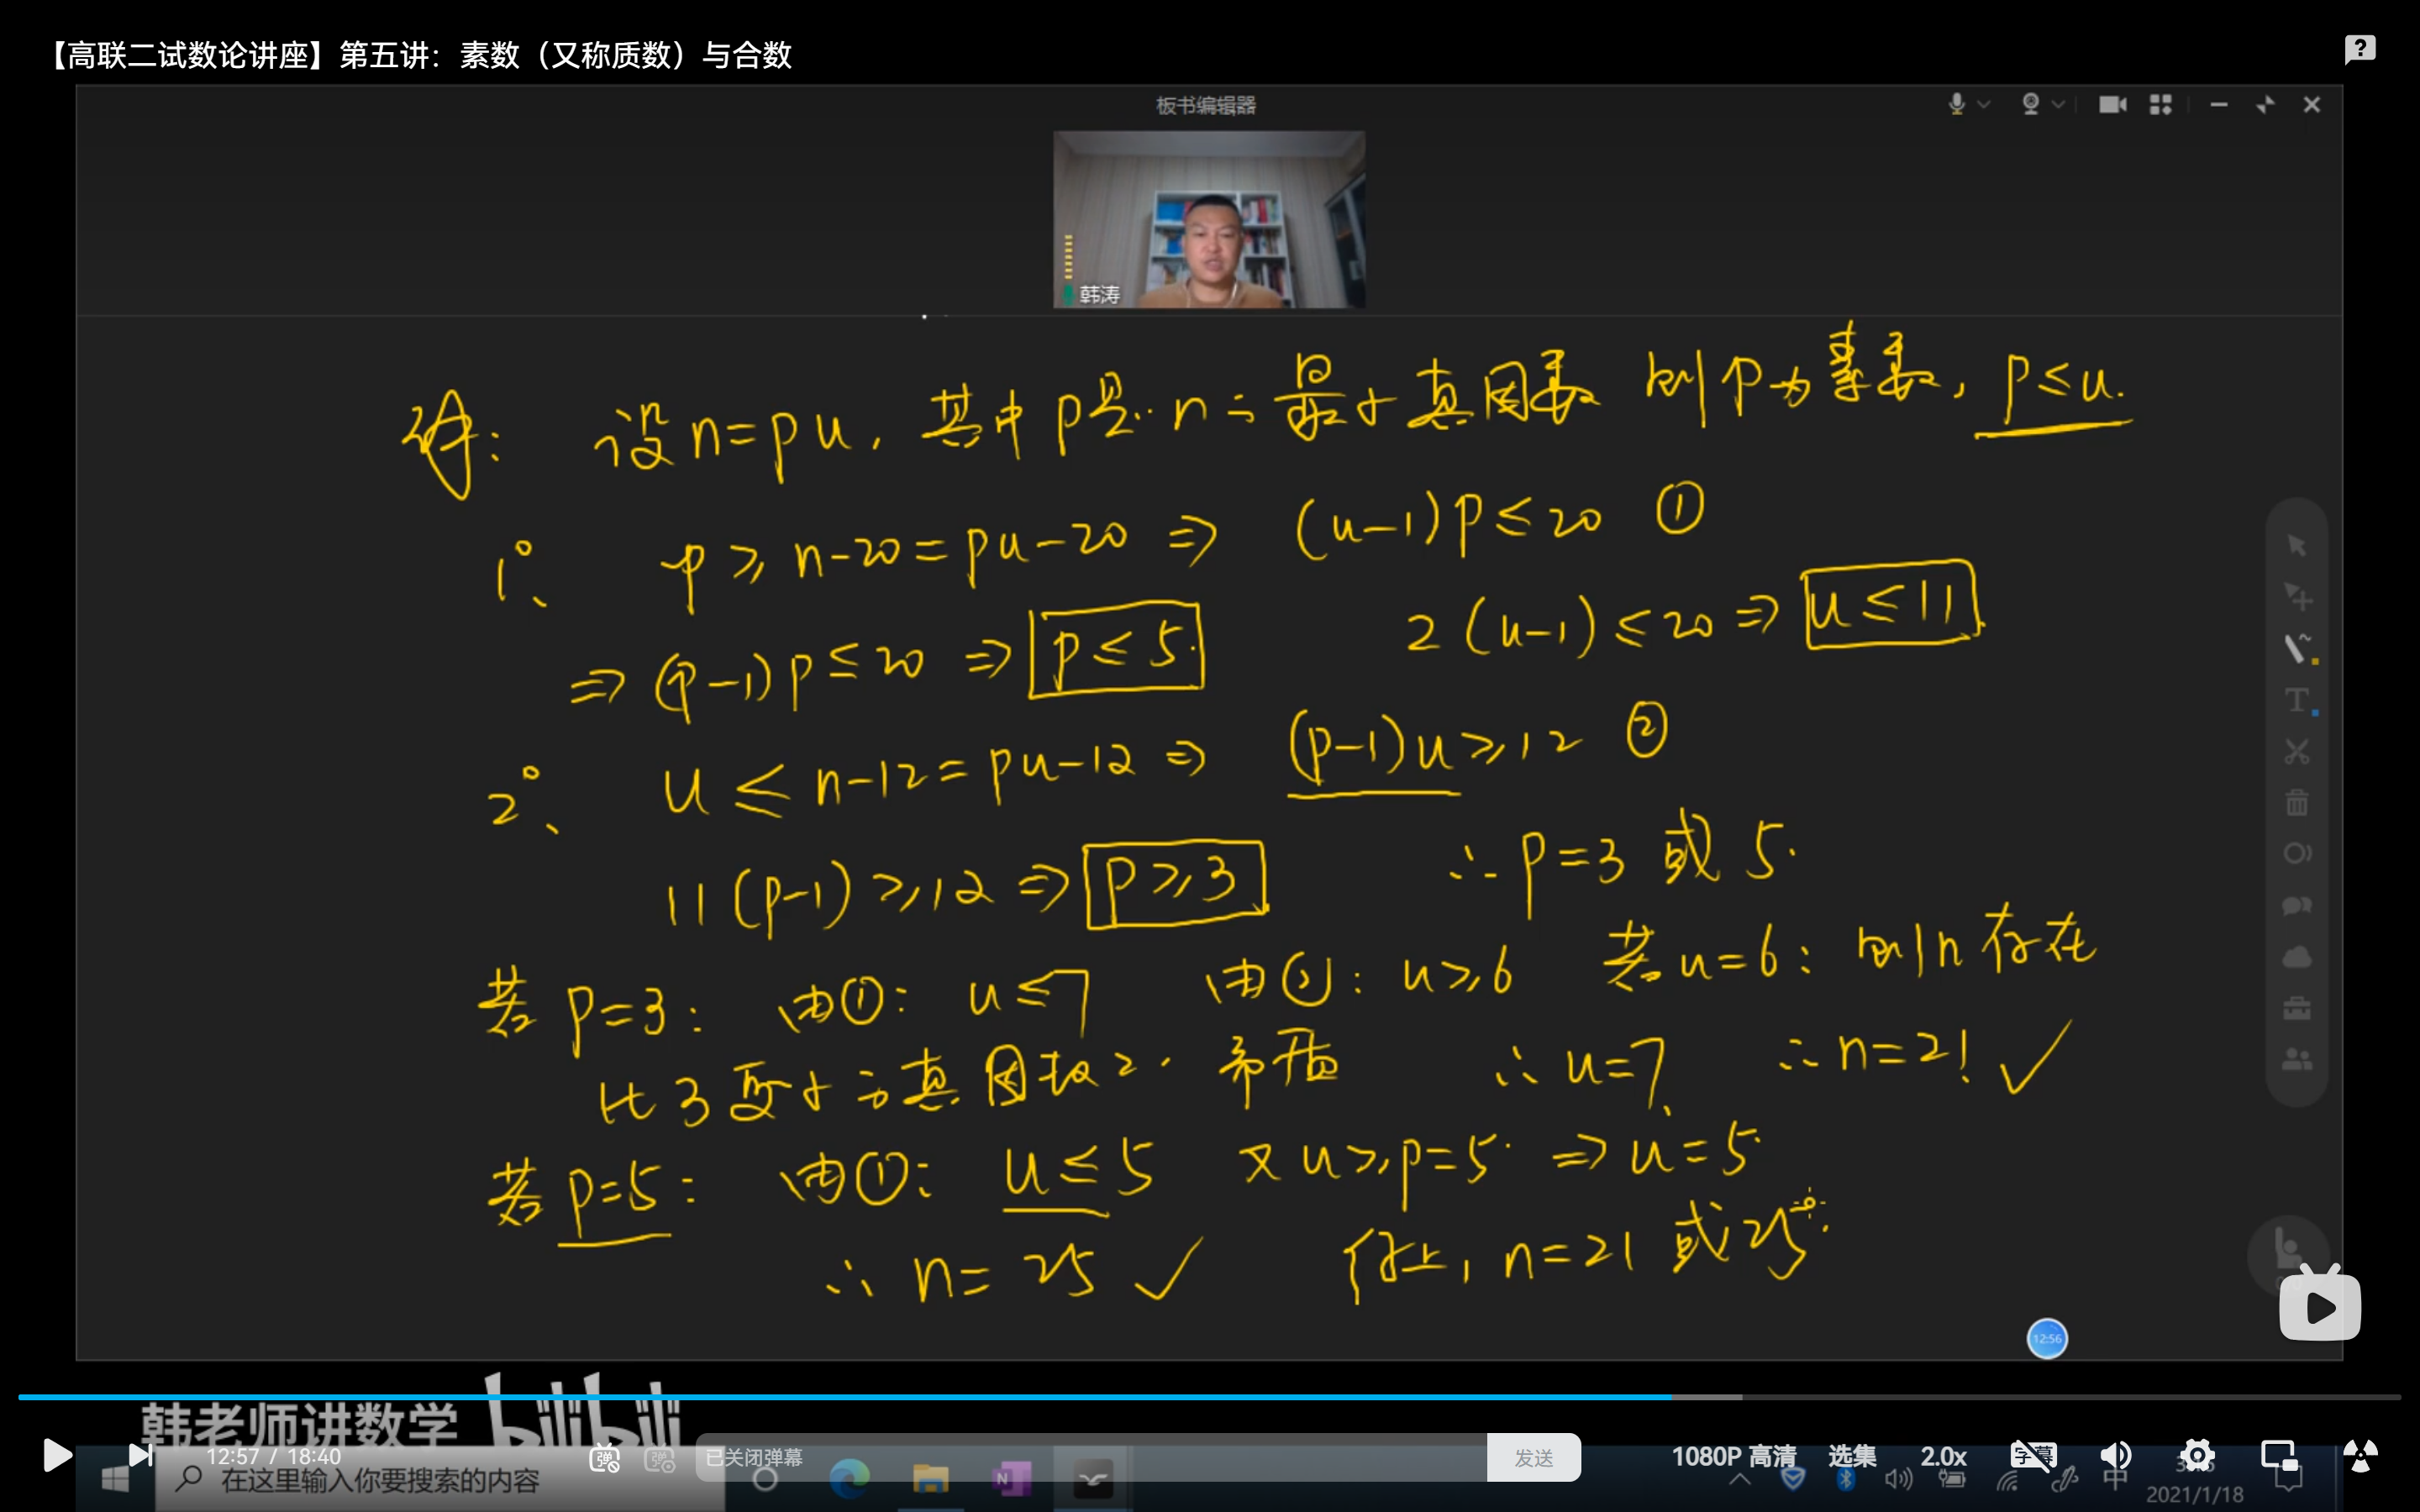 【高联二试数论讲座】第五讲：素数（又称质数）与合数
板书编辑器
韩涛
设n=pu，其中p是n的最小真因数 则p为素数，p≤u.
1°、 p≥n-20=pu-20 ⇒ (u-1)p≤20 ①
⇒ (p-1)p≤20 ⇒ p≤5. 2(u-1)≤20 ⇒ u≤11
2°、 u≤n-12=pu-12 ⇒ (p-1)u≥12 ②
11(p-1)≥12 ⇒ p≥3 ∴p=3 或 5.
若p=3： 由①：u≤7 由②：u≥6 若u=6：则n存在
比3更小的真因数2，矛盾 ∴u=7， ∴n=21 ✓
若p=5： 由①：u≤5 又u≥p=5. ⇒u=5.
∴ n=25 ✓ 综上，n=21 或25.
12:56
韩老师讲数学 bilibili
12:57 / 18:40 弹 弹 已关闭弹幕 发送 1080P 高清 选集 2.0x 字幕
在这里输入你要搜索的内容 中
2021/1/18